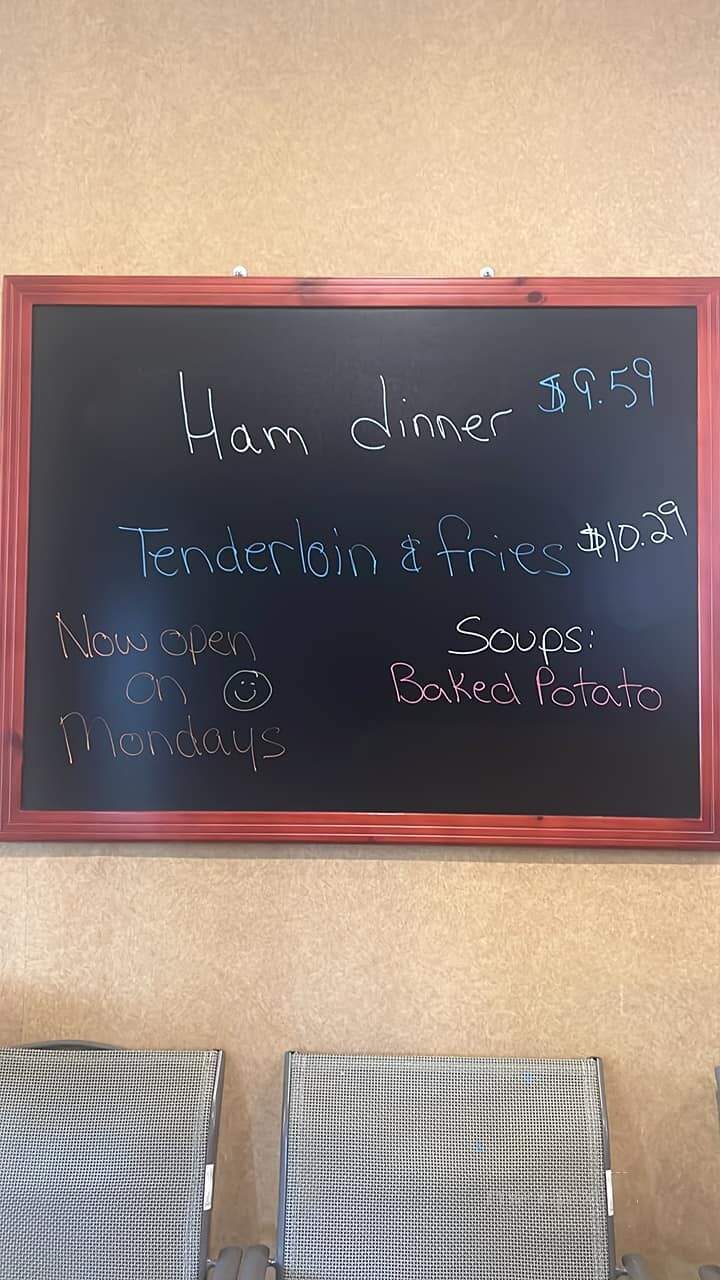 Ham dinner $9.59
Tenderloin & fries $10.29
Now open
on
Mondays
Soups:
Baked Potato